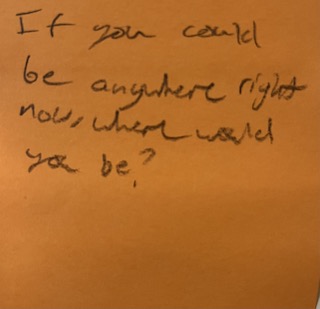 If you could
be anywhere right
now, where would
you be?